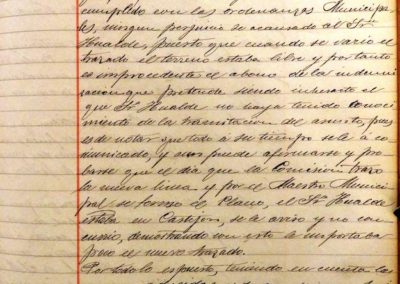 cumplido con las ordenanzas Municipa-
les, ningun perjuicio se acausado al Sr.
Hualde, puesto que cuando se vario el
trazado el terreno estaba libre y por tanto
es improcedente el abono de la indemni-
zacion que pretende siendo inexacto el
que Sr. Hualde no haya tenido conoci-
miento de la tramitacion del asunto, pues
es de notar que todo á su tiempo se le á co-
municado, y aun puede afirmarse y pro-
barse que el dia que la Comision trazo
la nueva linea y por el Maestro Munici-
pal se formo el Plano, el Sr. Hualde
estaba en Castejon, se le aviso y no con-
currio, demostrando con esto le importaba
poco el nuevo trazado.
Por todo lo espuesto, teniendo en cuenta las